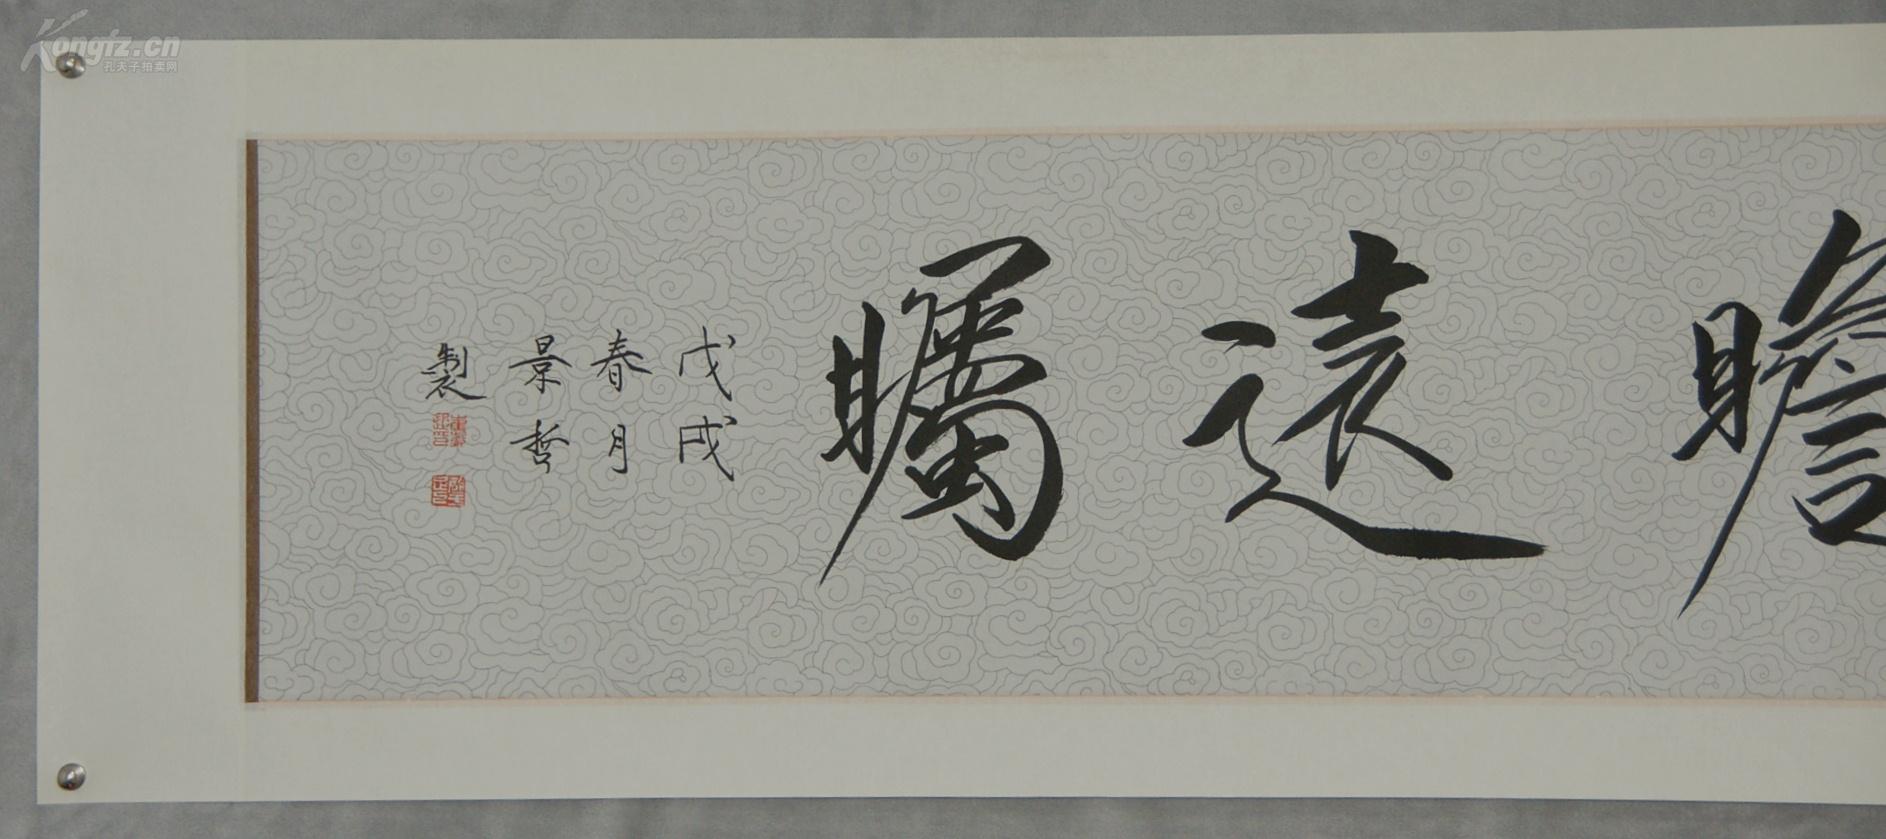 瞻遠矚
戊戌
春月
景哲
製
Kongfz.cn
孔夫子拍卖网